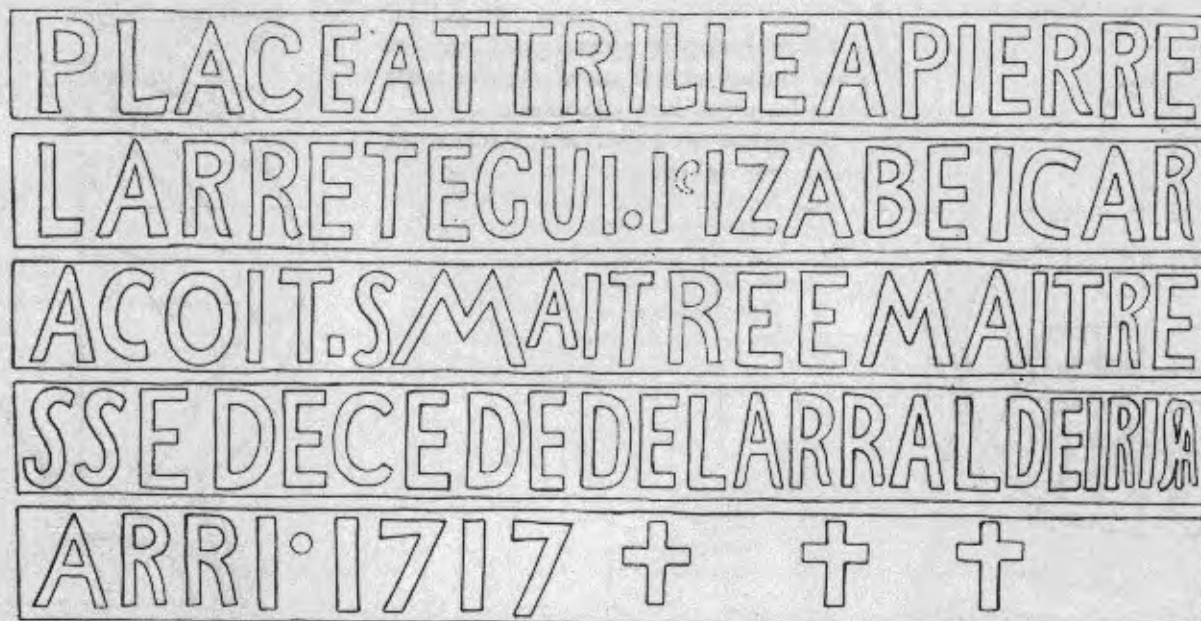 PLACEATTRILLEAPIERRE
LARRETEGUI.IeIZABEICAR
ACOIT.SMAITREEMAITRE
SSEDECEDEDELARRALDEIRISA
ARRI·1717 + + +